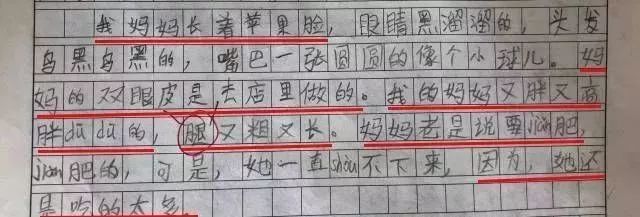 我妈妈长着苹果脸，眼睛黑溜溜的，头发
乌黑乌黑的，嘴巴一张圆圆的像个小球儿。妈
妈的双眼皮是，去店里做的。我的妈妈又胖又高
胖dūdū的，腿又粗又长。妈妈老是说要jiǎn肥，
jiǎn肥的，可是，她一直shòu不下来，因为，她还
是吃的太多。